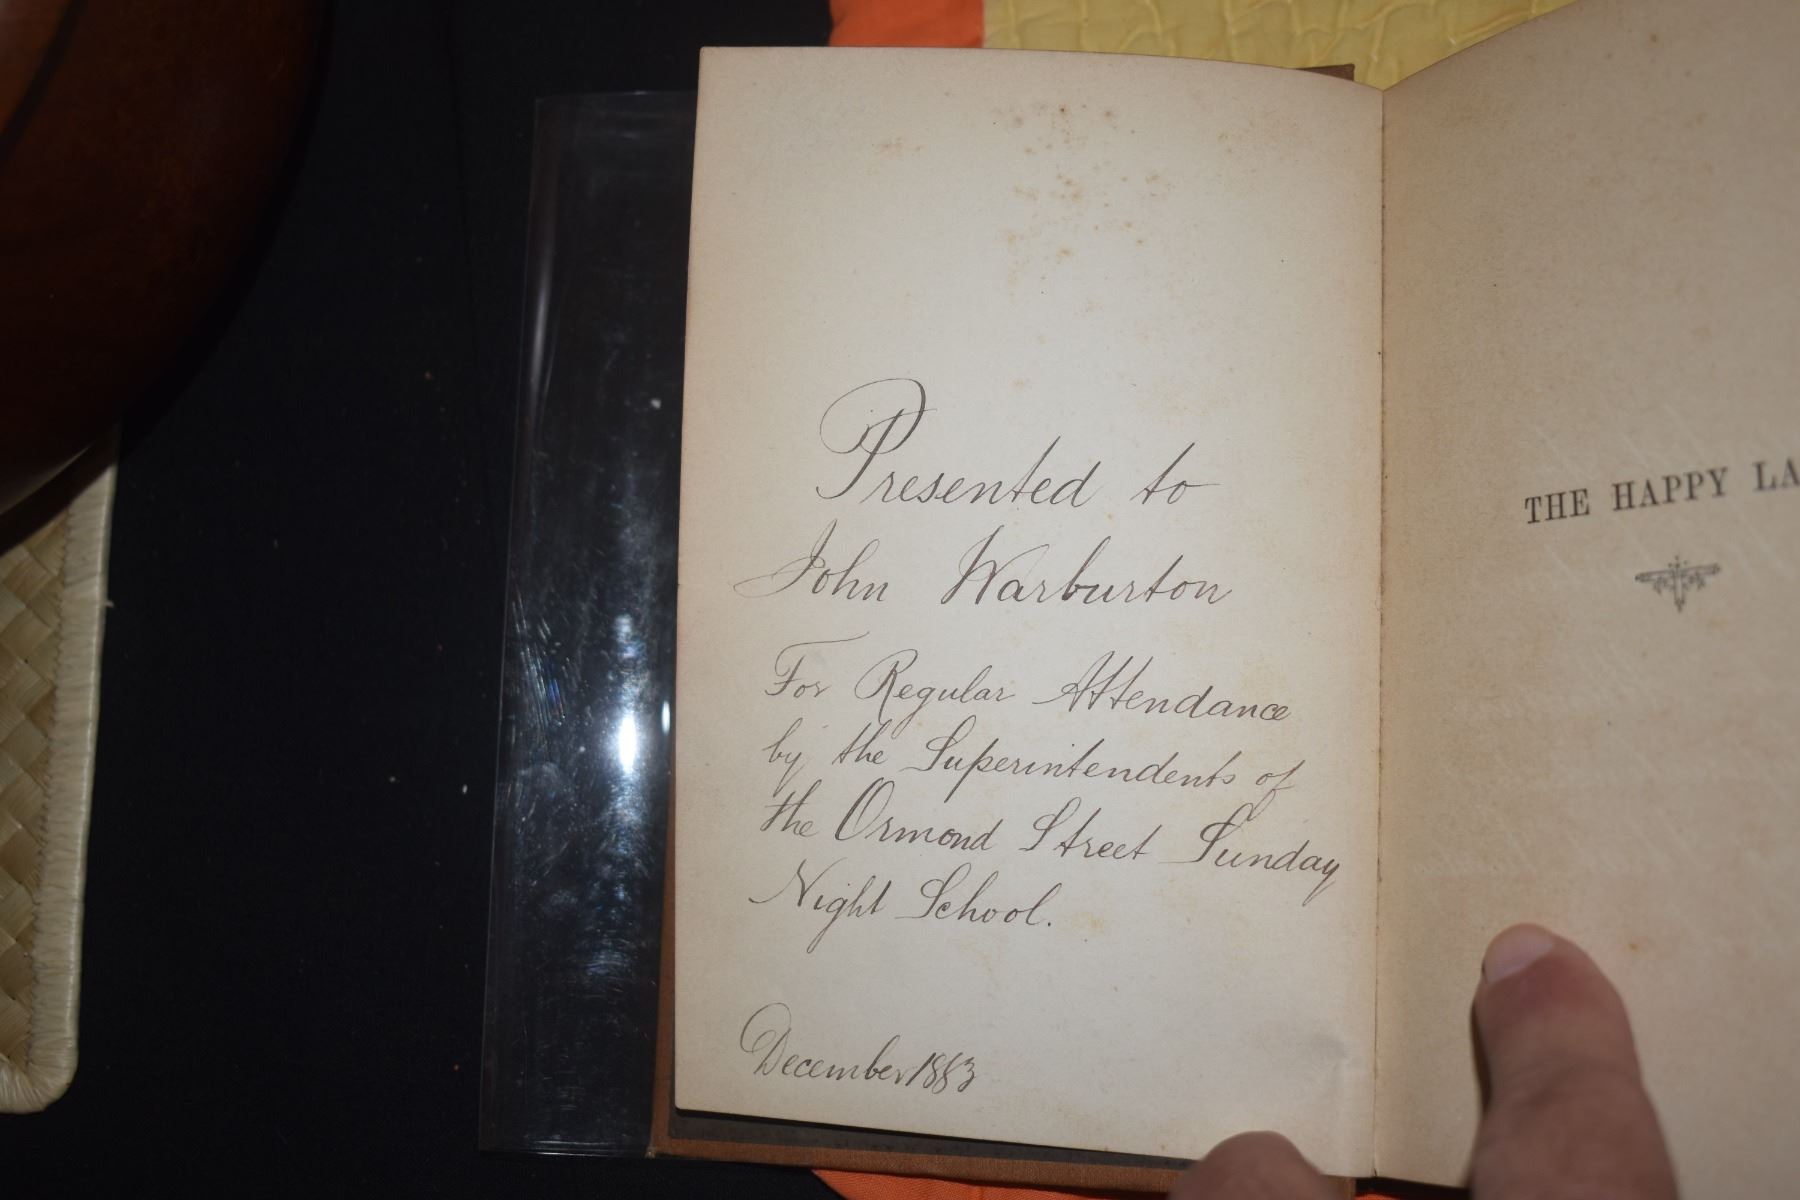 Presented to
John Warburton
For Regular Attendance
by the Superintendents of
the Ormond Street Sunday
Night School.
December 1883
THE HAPPY LA